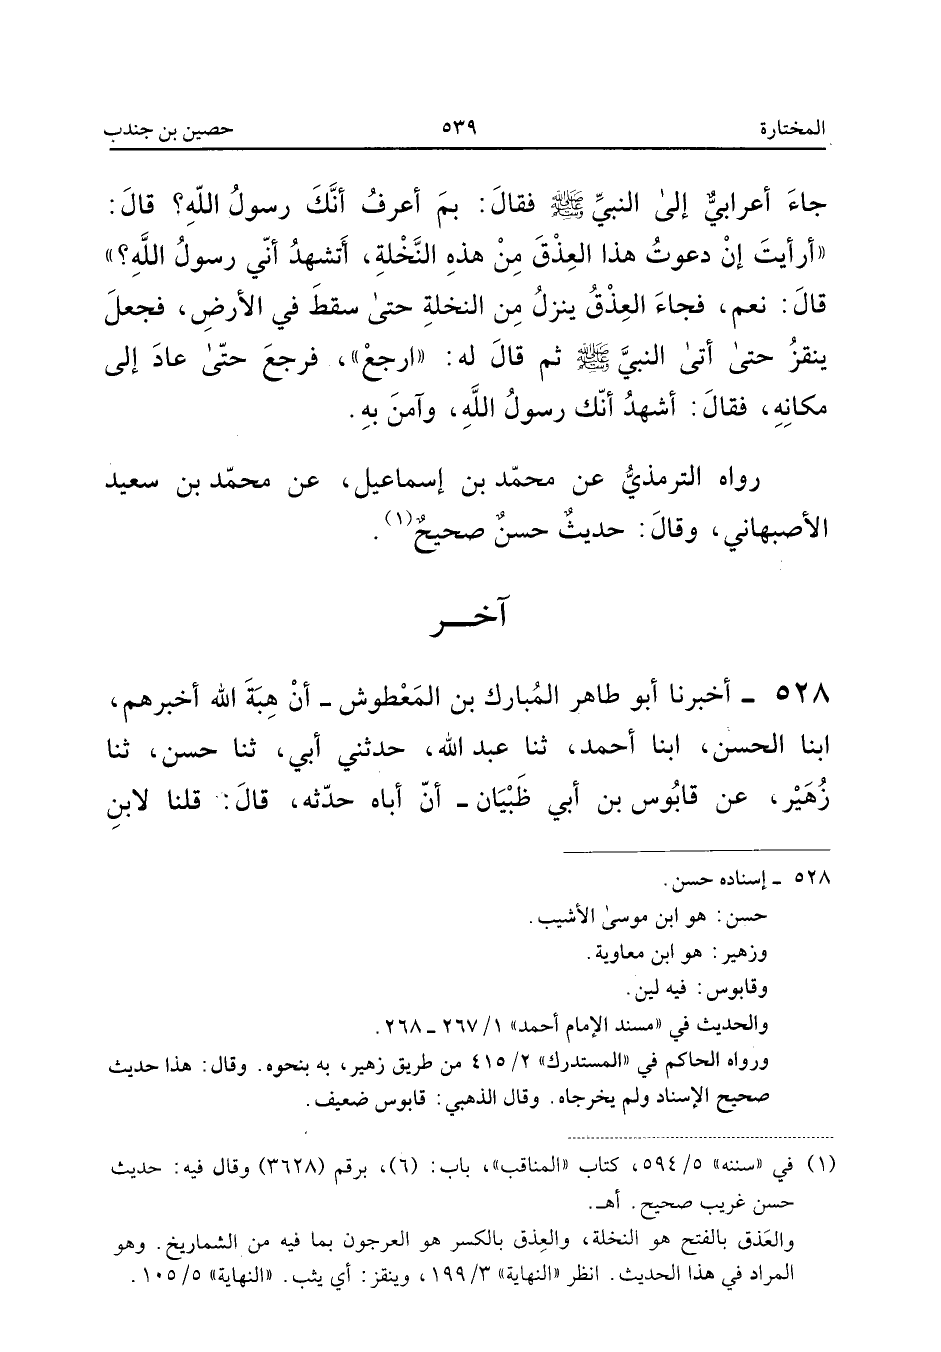 المختارة ٥٣٩ حصين بن جندب
جاءَ أعرابيٌّ إلىٰ النبيِّ ﷺ فقالَ: بمَ أعرفُ أنَّكَ رسولُ اللّهِ؟ قالَ:
«أرأيتَ إنْ دعوتُ هذا العِذْقَ مِنْ هذهِ النَّخْلةِ، أَتشهدُ أنّي رسولُ اللَّهِ؟»
قالَ: نعم، فجاءَ العِذْقُ ينزلُ مِن النخلةِ حتىٰ سقطَ في الأرضِ، فجعلَ
ينقزُ حتىٰ أتىٰ النبيَّ ﷺ ثم قالَ له: «ارجعْ»، فرجعَ حتّىٰ عادَ إلى
مكانِهِ، فقالَ: أشهدُ أنّك رسولُ اللَّهِ، وآمنَ بهِ.
رواه الترمذيُّ عن محمّد بن إسماعيل، عن محمّد بن سعيد
الأصبهاني، وقالَ: حديثٌ حسنٌ صحيحٌ(١).
آخــر
٥٢٨ ـ أخبرنا أبو طاهر المُبارك بن المَعْطوش ـ أنْ هِبَةَ الله أخبرهم،
ابنا الحسن، ابنا أحمد، ثنا عبد الله، حدثني أبي، ثنا حسن، ثنا
زُهَيْر، عن قابُوس بن أبي ظَبْيَان ـ أنّ أباه حدّثه، قالَ: قلنا لابنِ
٥٢٨ ـ إسناده حسن.
حسن: هو ابن موسىٰ الأشيب.
وزهير: هو ابن معاوية.
وقابوس: فيه لين.
والحديث في «مسند الإمام أحمد» ١/ ٢٦٧ ـ ٢٦٨.
ورواه الحاكم في «المستدرك» ٢/ ٤١٥ من طريق زهير، به بنحوه. وقال: هذا حديث
صحيح الإسناد ولم يخرجاه. وقال الذهبي: قابوس ضعيف.
(١) في «سننه» ٥/ ٥٩٤، كتاب «المناقب»، باب: (٦)، برقم (٣٦٢٨) وقال فيه: حديث
حسن غريب صحيح. أهـ.
والعَذق بالفتح هو النخلة، والعِذق بالكسر هو العرجون بما فيه من الشماريخ. وهو
المراد في هذا الحديث. انظر «النهاية» ٣/ ١٩٩، وينقز: أي يثب. «النهاية» ٥/ ١٠٥.